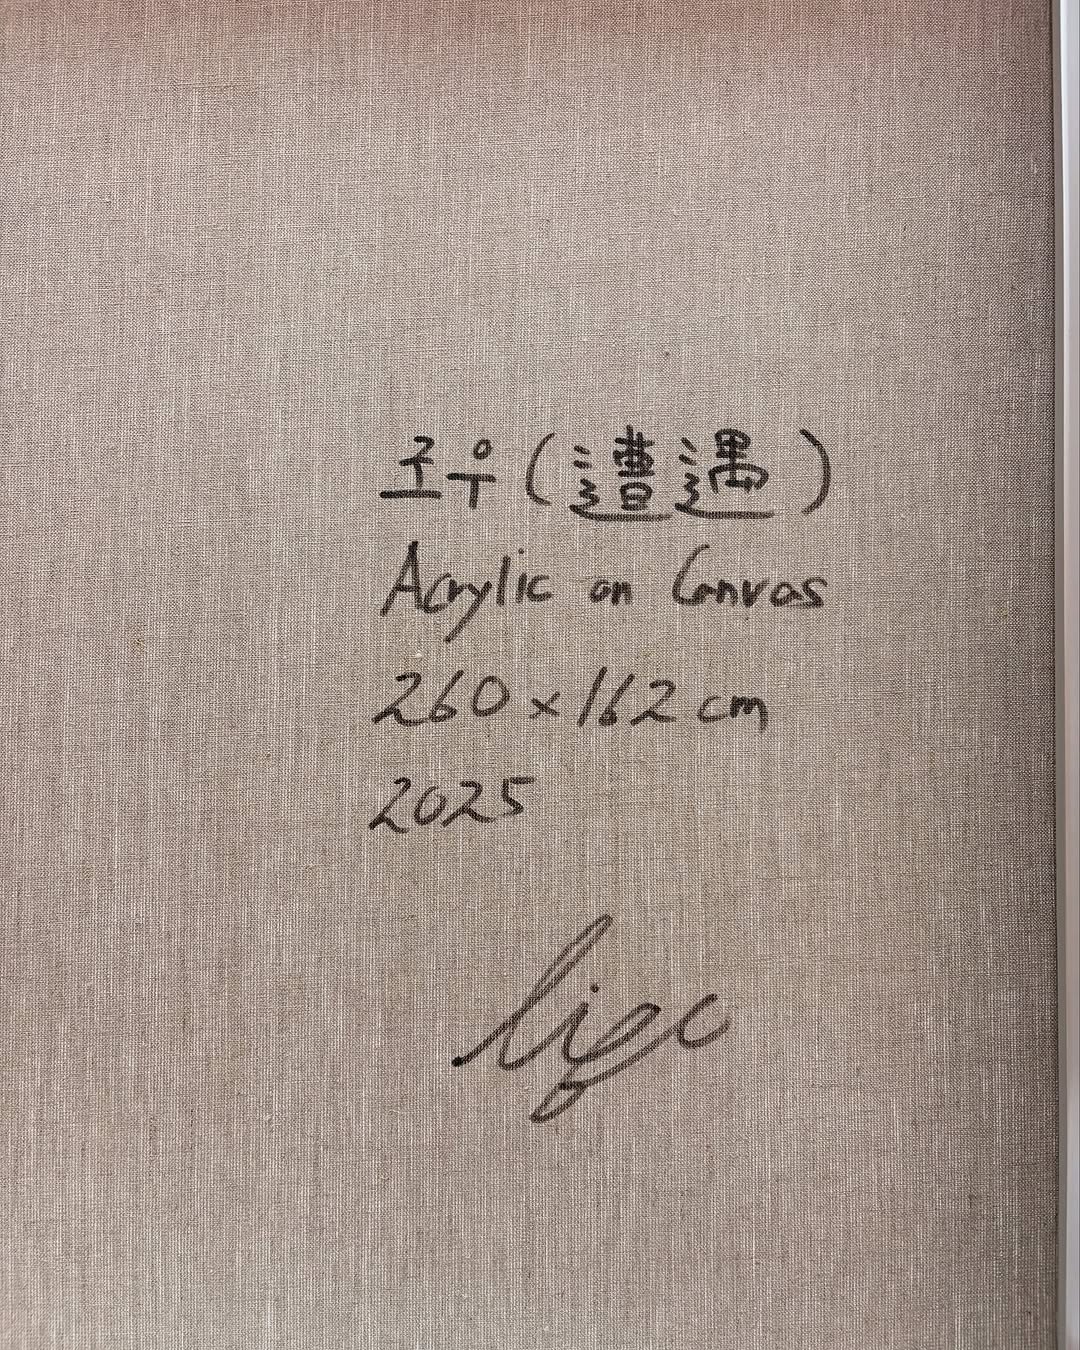 조우(遭遇)
Acrylic on Canvas
260 x 162 cm
2025